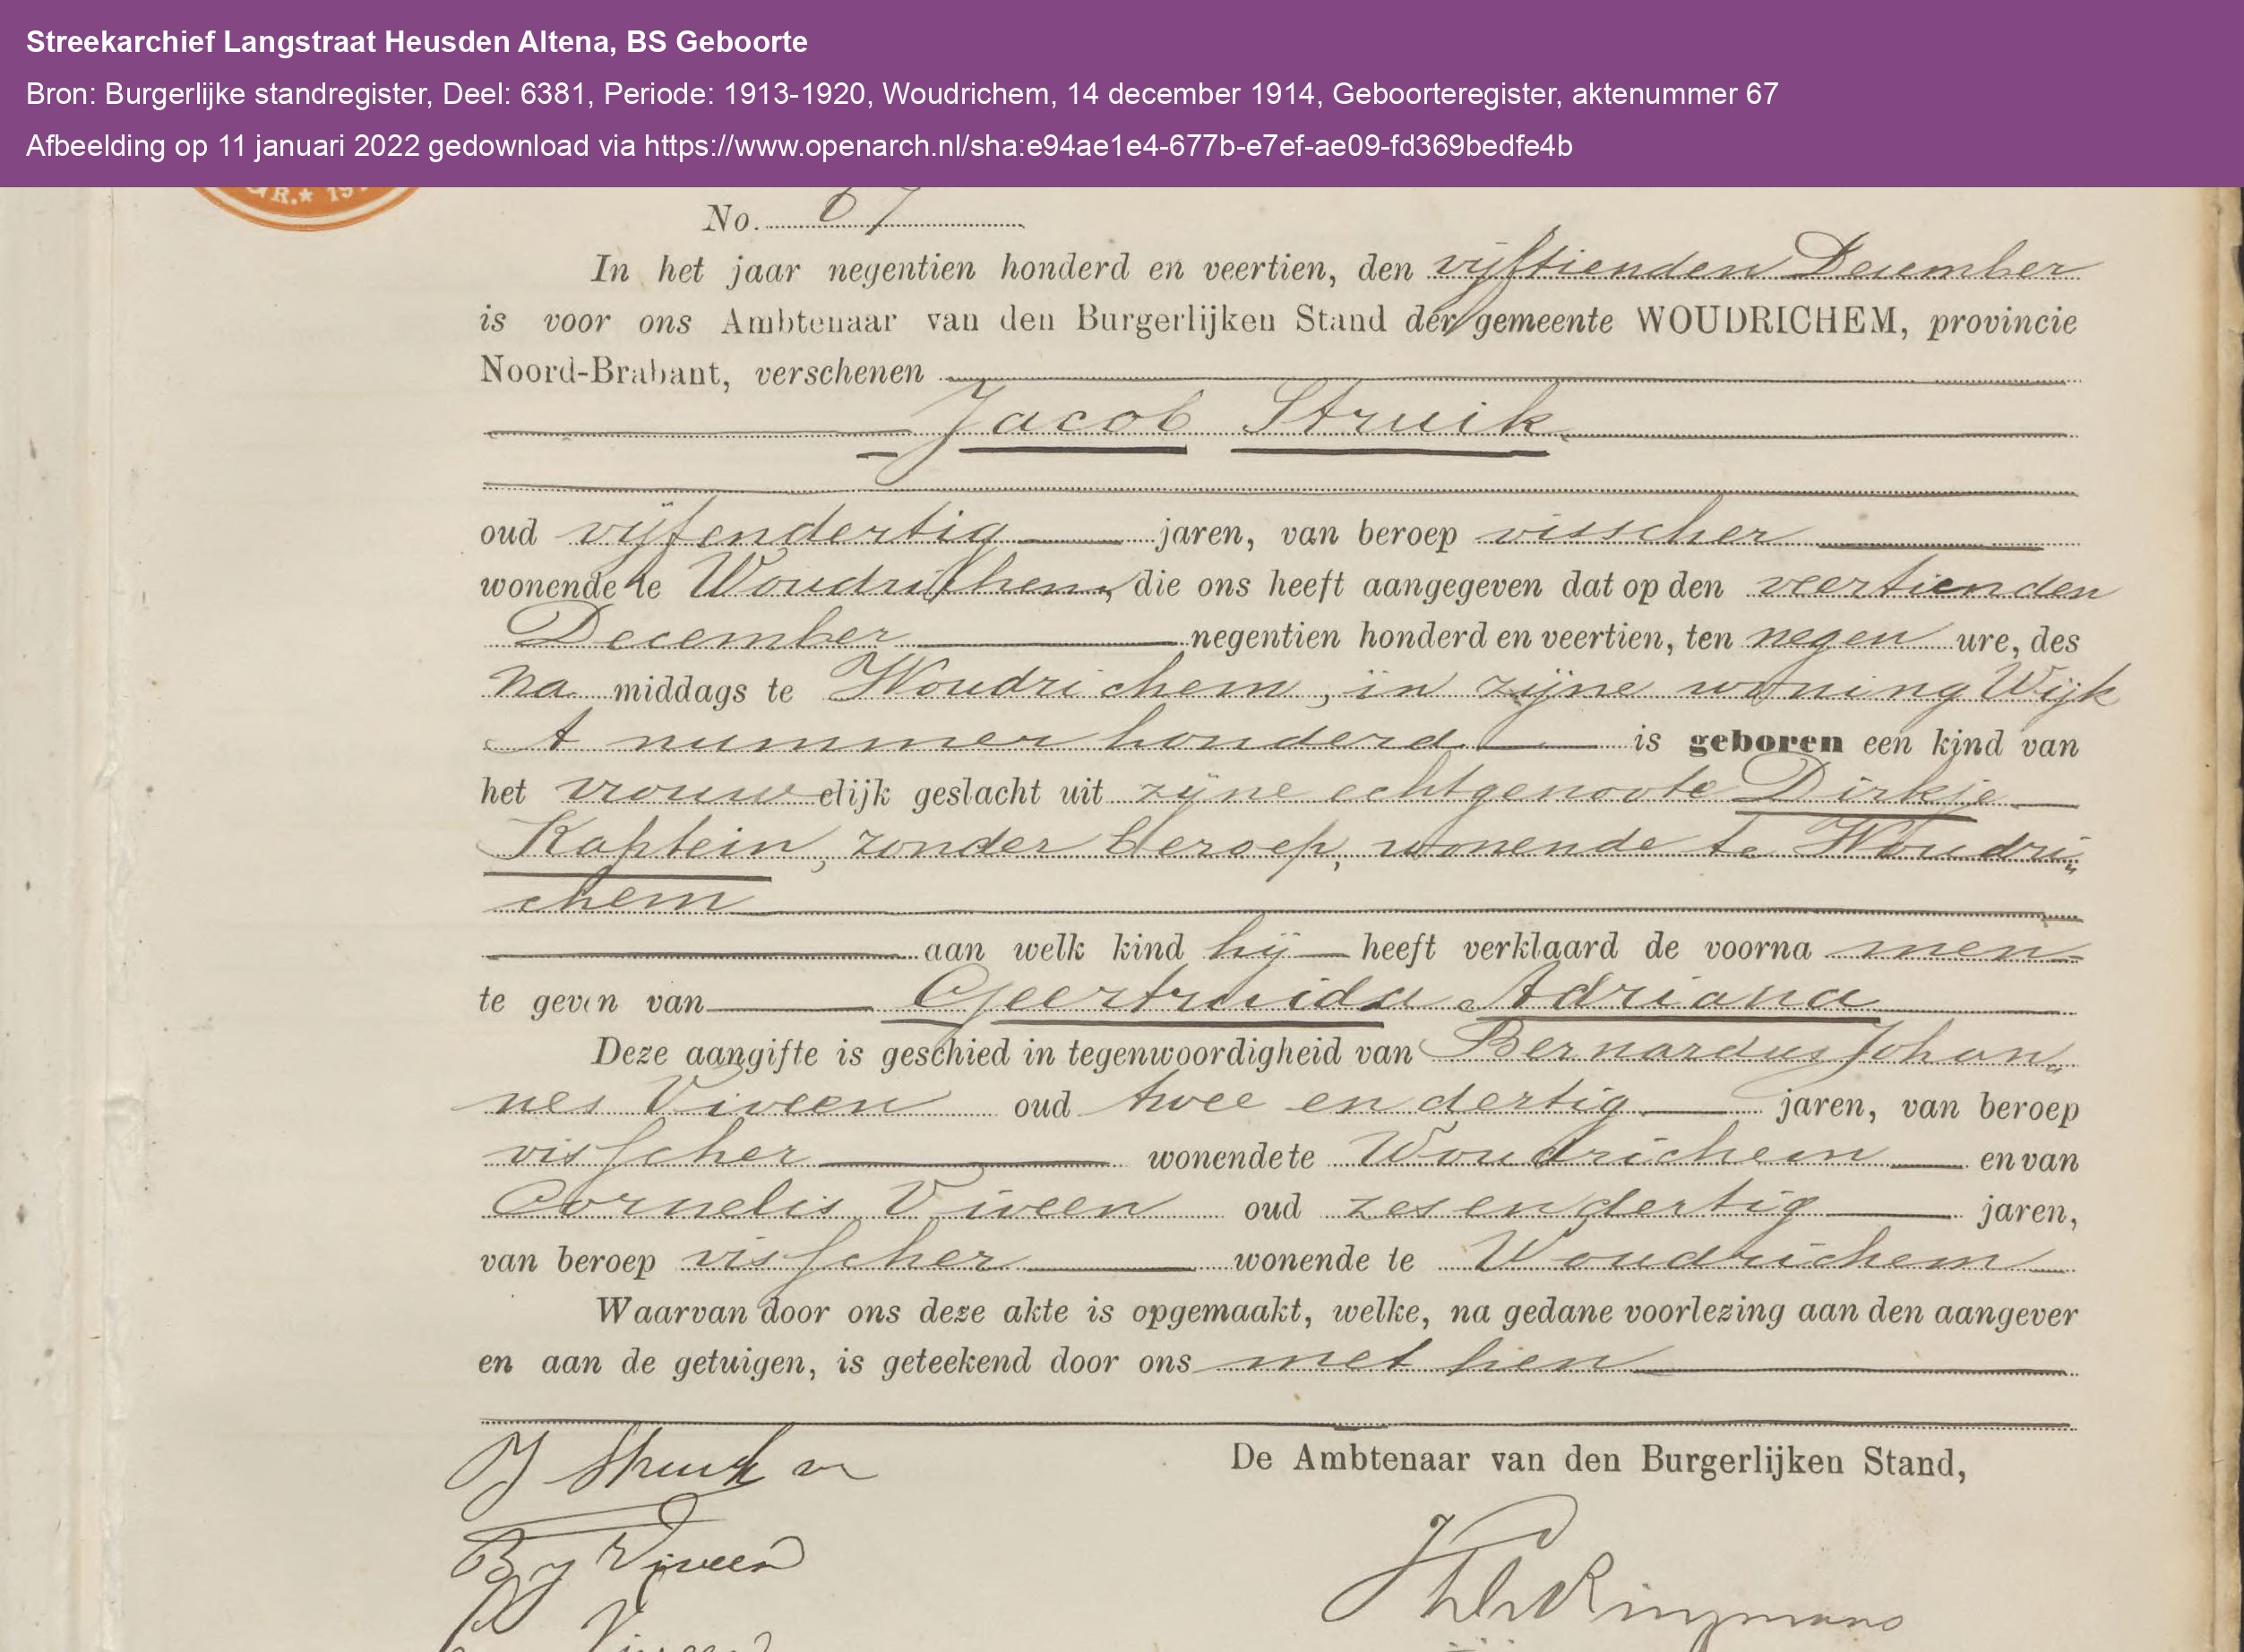 Streekarchief Langstraat Heusden Altena, BS Geboorte
Bron: Burgerlijke standregister, Deel: 6381, Periode: 1913-1920, Woudrichem, 14 december 1914, Geboorteregister, aktenummer 67
Afbeelding op 11 januari 2022 gedownload via https://www.openarch.nl/sha:e94ae1e4-677b-e7ef-ae09-fd369bedfe4b
No. 67
In het jaar negentien honderd en veertien, den vijftienden December
is voor ons Ambtenaar van den Burgerlijken Stand der gemeente WOUDRICHEM, provincie
Noord-Brabant, verschenen
Jacob Struik
oud vijfendertig jaren, van beroep visscher
wonende te Woudrichem, die ons heeft aangegeven dat op den veertienden
December negentien honderd en veertien, ten negen ure, des
na middags te Woudrichem, in zijne woning Wijk
A nummer honderd is geboren een kind van
het vrouwelijk geslacht uit zijne echtgenoote Dirkje
Kaptein, zonder beroep, wonende te Woudri„
chem
aan welk kind hij heeft verklaard de voorna men
te geven van Geertruida Adriana
Deze aangifte is geschied in tegenwoordigheid van Bernardus Johan„
nes Viveen oud twee en dertig jaren, van beroep
visscher wonende te Woudrichem en van
Cornelis Viveen oud zesendertig jaren,
van beroep visscher wonende te Woudrichem
Waarvan door ons deze akte is opgemaakt, welke, na gedane voorlezing aan den aangever
en aan de getuigen, is geteekend door ons met hen
De Ambtenaar van den Burgerlijken Stand,
J Struik
B J Viveen
Viveen